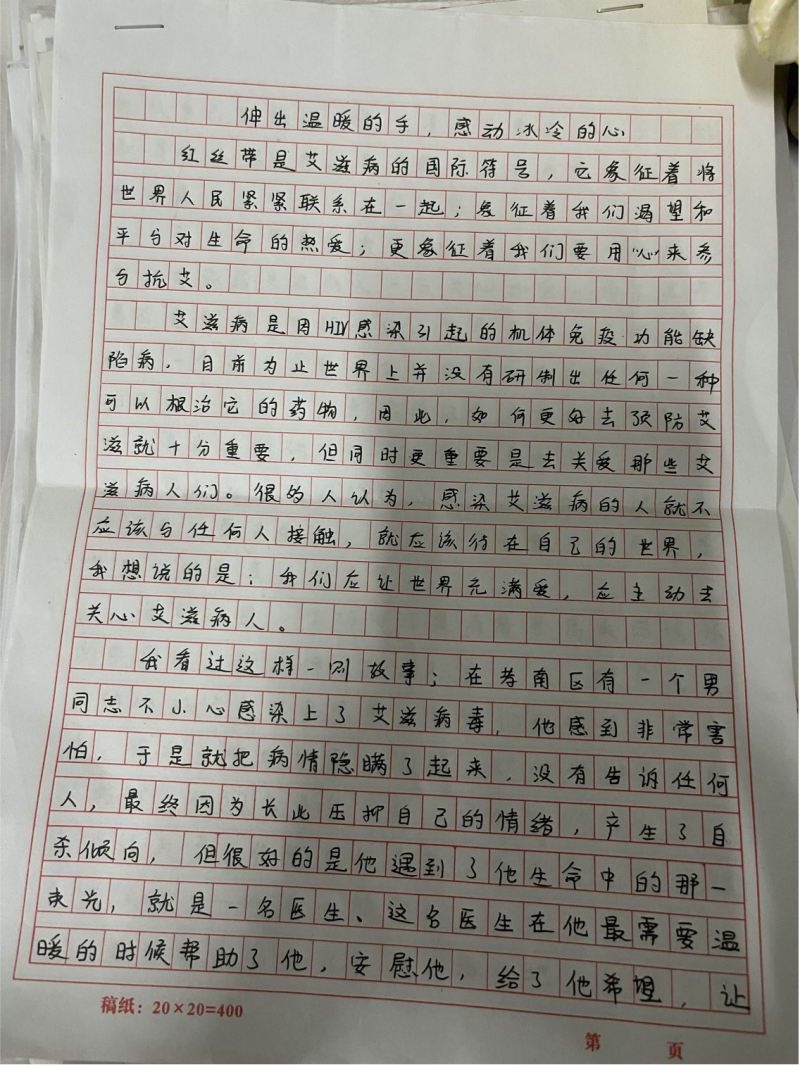 伸出温暖的手，感动冰冷的心
红丝带是艾滋病的国际符号，它象征着将
世界人民紧紧联系在一起；象征着我们渴望和
平与对生命的热爱；更象征着我们要用“心”来参
与抗艾。
艾滋病是因HIV感染引起的机体免疫功能缺
陷病．目前为止世界上并没有研制出任何一种
可以根治它的药物，因此，如何更好去预防艾
滋就十分重要，但同时更重要是去关爱那些艾
滋病人们。很多人认为，感染艾滋病的人就不
应该与任何人接触，就应该待在自己的世界，
我想说的是：我们应让世界充满爱，应主动去
关心艾滋病人。
我看过这样一则故事；在荐南区有一个男
同志不小心感染上了艾滋病毒，他感到非常害
怕，于是就把病情隐瞒了起来，没有告诉任何
人，最终因为长此压抑自己的情绪，产生了自
杀倾向，但很好的是他遇到了他生命中的那一
束光，就是一名医生、这名医生在他最需要温
暖的时候帮助了他，安慰他，给了他希望，让
稿纸：20×20=400
第 页